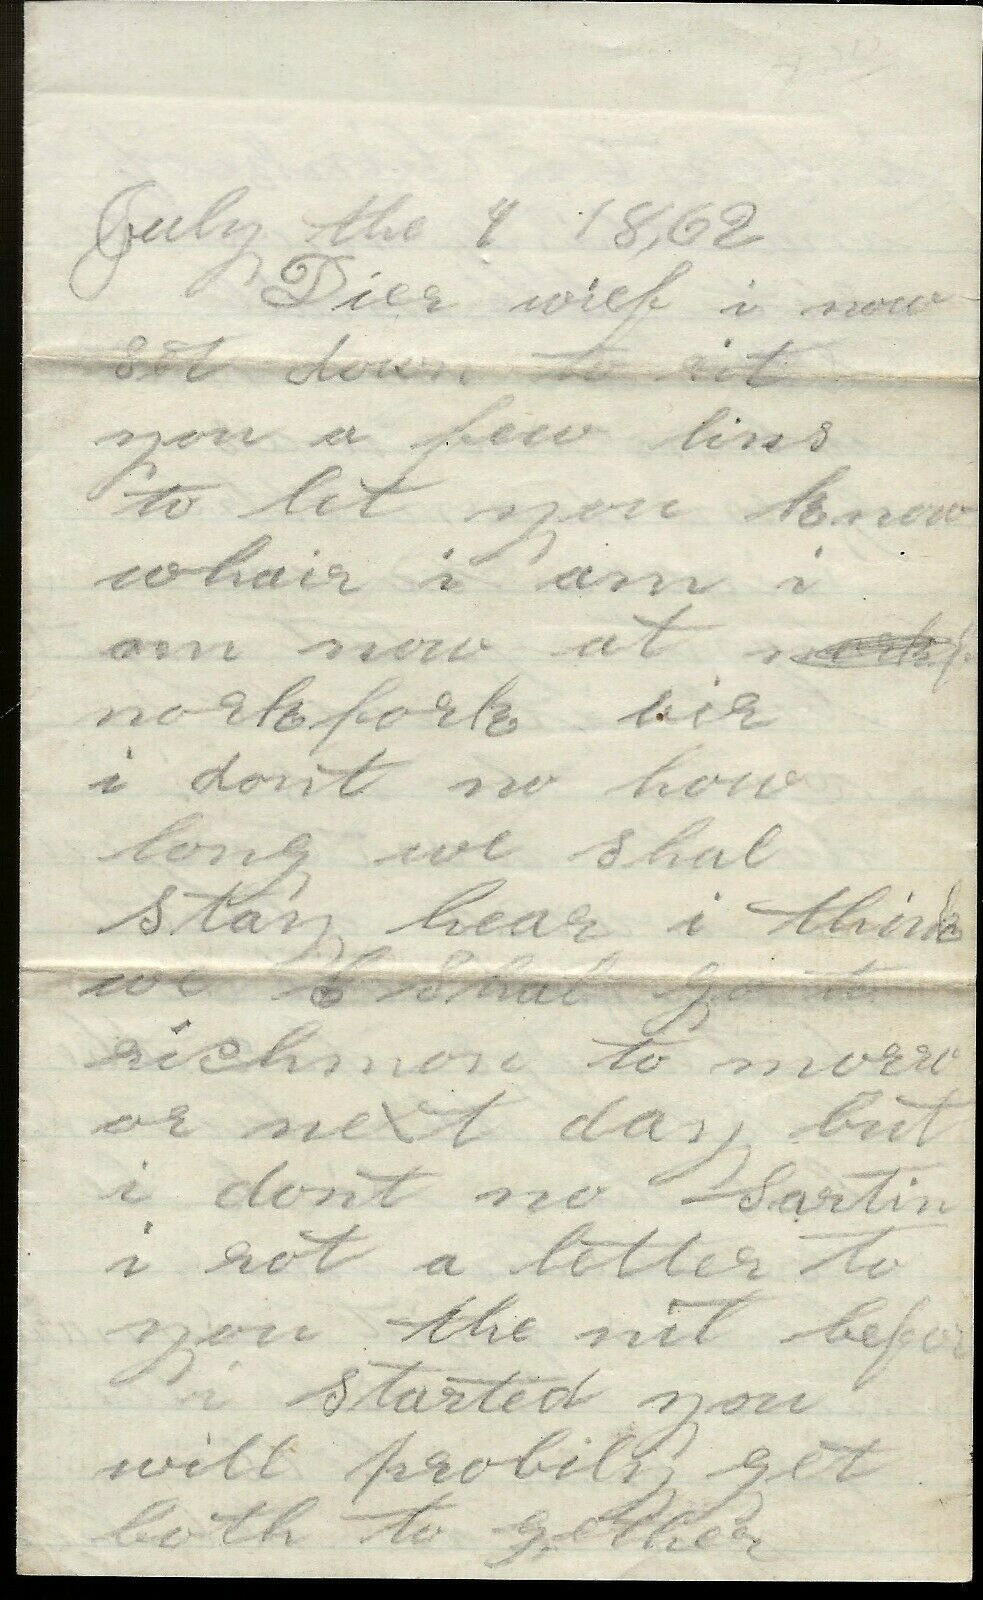 July the 9 18,62
Dier wief i now
set down to rit
you a few lins
to let you know
whair i am i
am now at
norkfork vir
i dont no how
long we shal
stay hear i think
we shal go to
richmon to morro
or next day but
i dont no sartin
i rot a letter to
you the nit befor
i started you
will probily get
both to gether